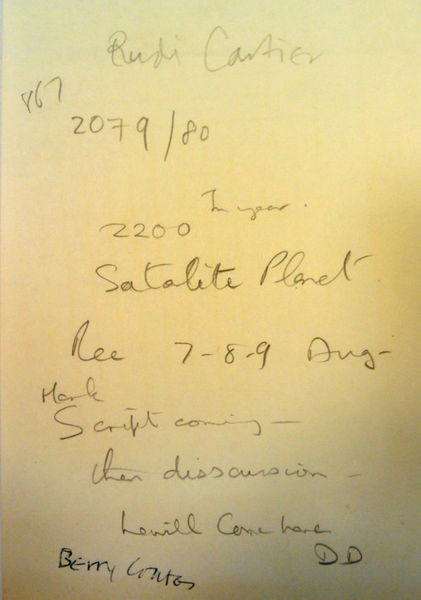 Rudi Cartier
867
2079/80
In year.
2200
Satalite Planet
Rec 7-8-9 Aug-
Mark
Script coming —
then disscussion —
he will Come here
DD
Berry